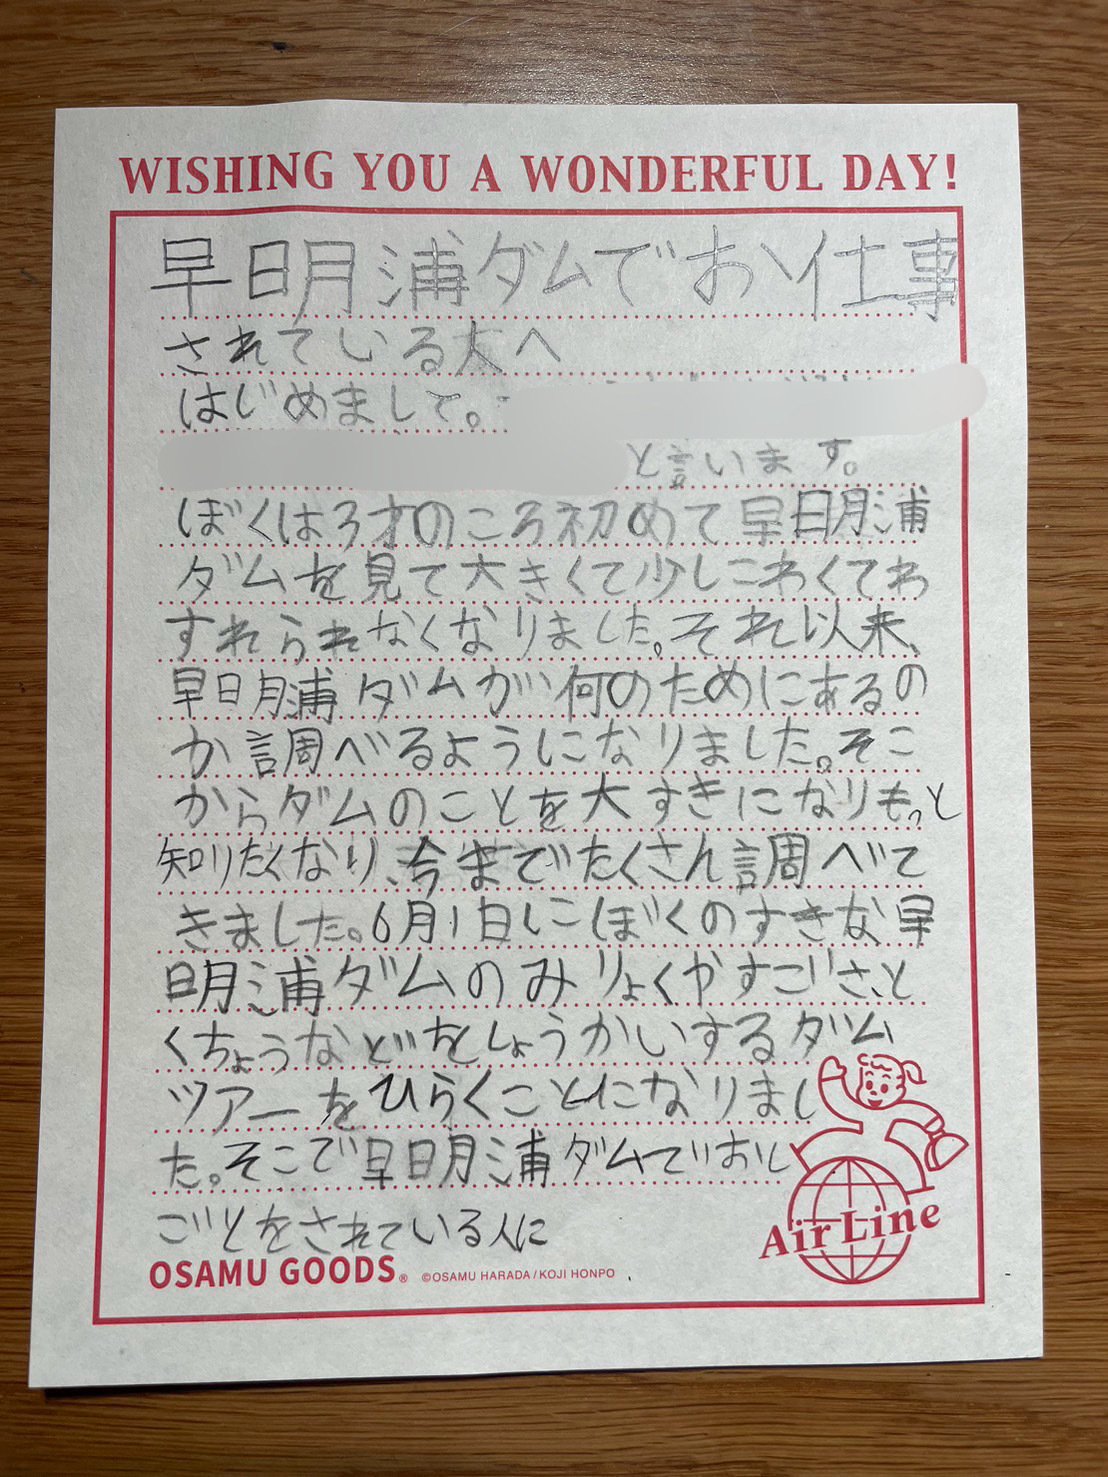 WISHING YOU A WONDERFUL DAY!
早日月浦ダムでお仕事
されている太へ
はじめまして。
と言います。
ぼくは3才のころ初めて早日月浦
ダムを見て大きくて少しこわくてわ
すれられなくなりました。それ以来、
早日月浦ダムが何のためにあるの
か調べるようになりました。そこ
からダムのことを大すきになりもっと
知りたくなり、今までたくさん調べて
きました。6月1日にぼくのすきな早
日月浦ダムのみりょくやすごさ、と
くちょうなどをしょうかいするダム
ツアーをひらくことになりまし
た。そこで早日月浦ダムでおし
ごとをされている人に
Air Line
OSAMU GOODS® ©OSAMU HARADA / KOJI HONPO